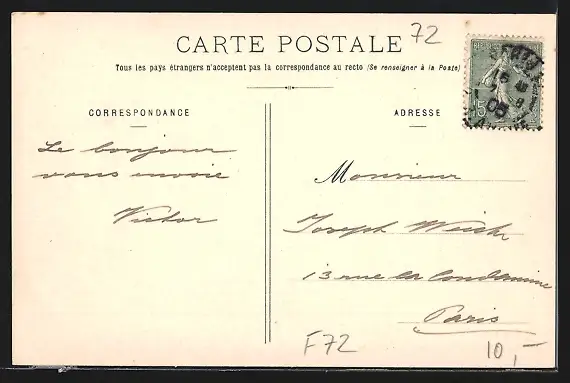 72
CARTE POSTALE
Tous les pays étrangers n'acceptent pas la correspondance au recto (Se renseigner à la Poste)
CORRESPONDANCE
ADRESSE
Le bonjour
vous envoie
Victor
Monsieur
Joseph
13 rue la Condamine
Paris
F72
10,-
15
05